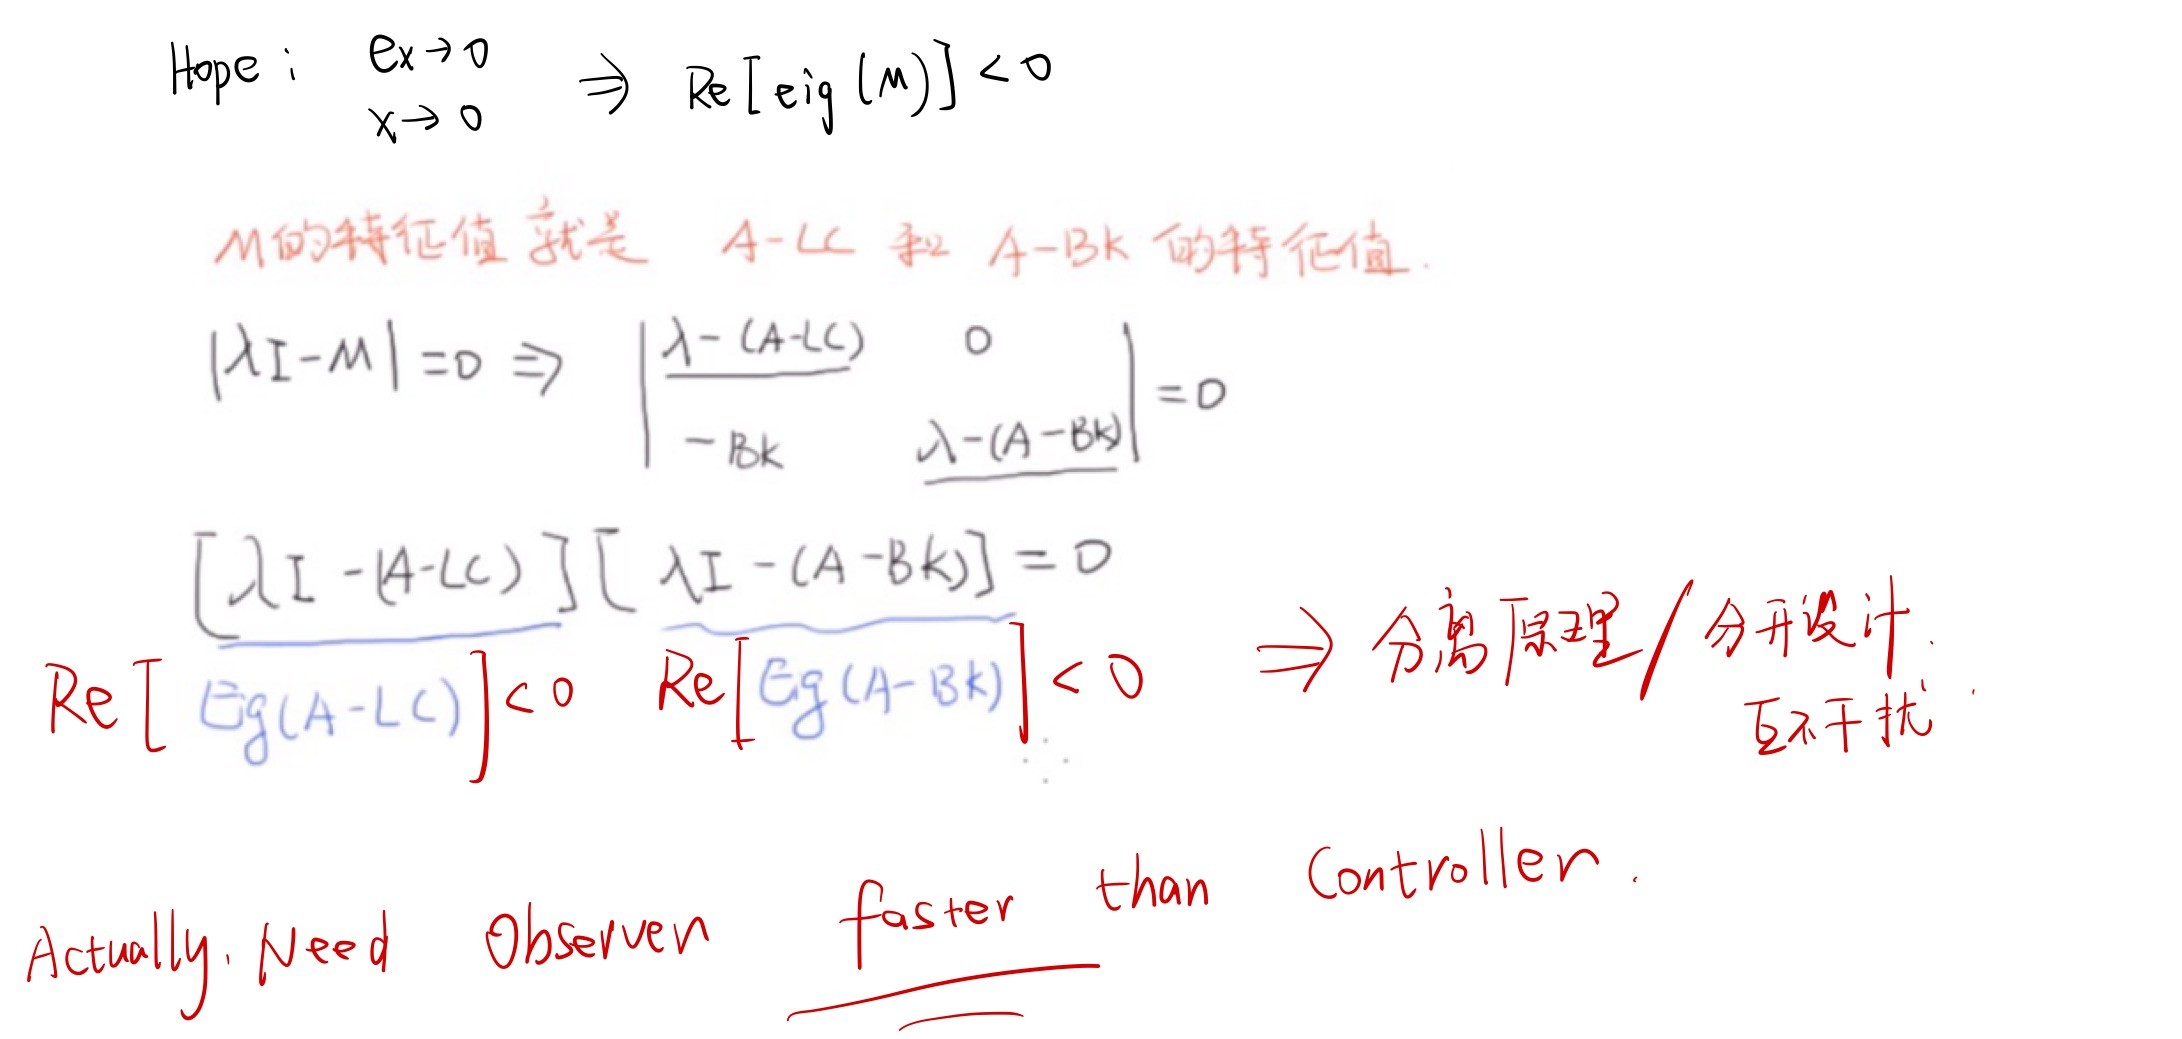 Hope : ex→0 ⇒ Re[eig(M)]<0
x→0
M的特征值就是 A-LC 和 A-BK 的特征值.
|λI-M|=0 ⇒ | λ-(A-LC) 0 | =0
-BK λ-(A-BK)
[λI-(A-LC)][λI-(A-BK)]=0
Re[Eg(A-LC)]<0 Re[Eg(A-BK)]<0 ⇒ 分离原理/分开设计.
互不干扰.
Actually, Need Observer faster than Controller.